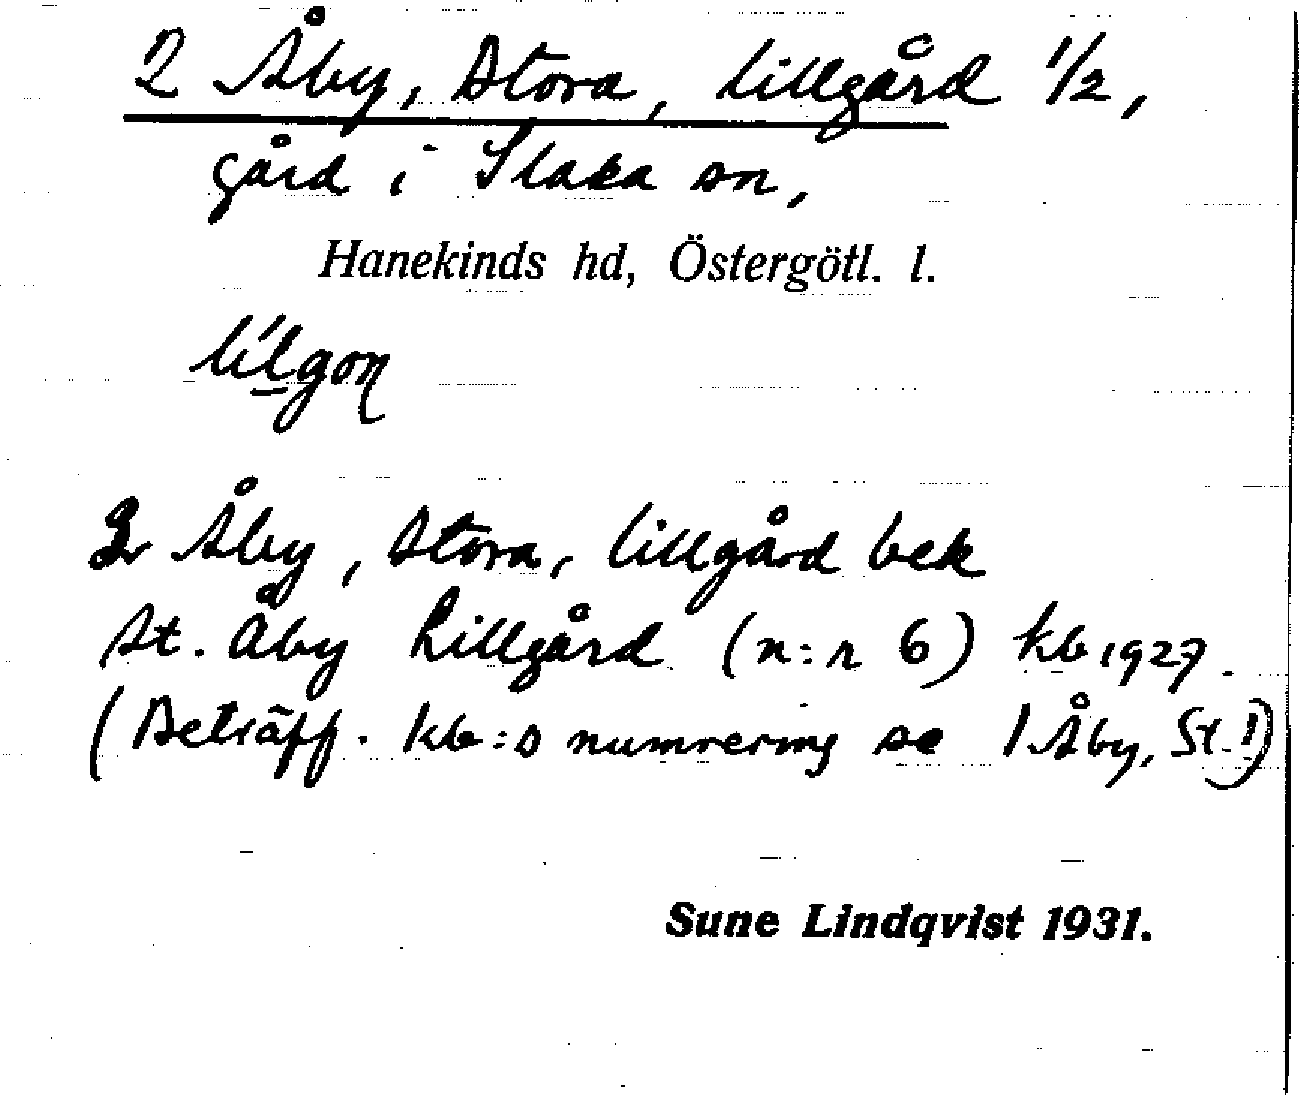 2 Åby, Stora, lillgård 1/2,
gård i Slaka sn,
Hanekinds hd, Östergötl. l.
Åby, Stora, lillgård bek
St. Åby Lillgård (n:r 6) kb 1927.
(Beträff. kb:s numrering se 1 Åby, St.!)
Sune Lindqvist 1931.